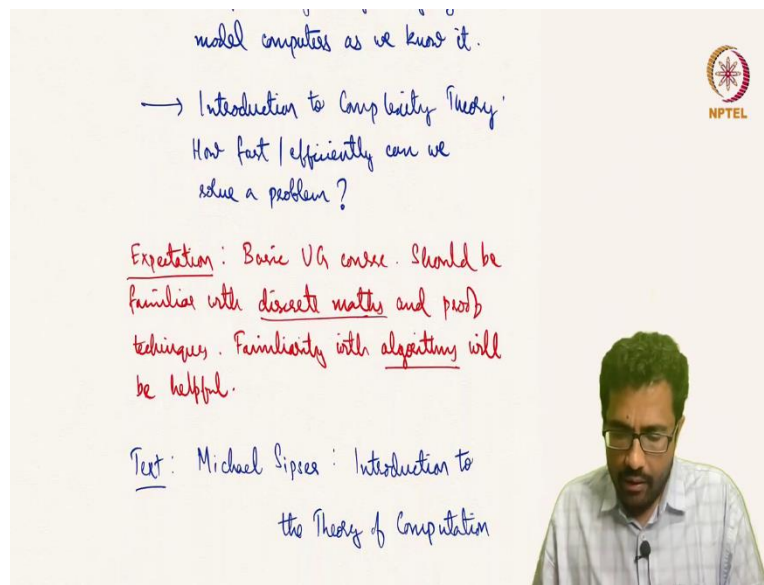 model computers as we know it.
→ Introduction to Complexity Theory:
How fast / efficiently can we
solve a problem?
Expectation: Basic UG course. Should be
familiar with discrete maths and proof
techniques. Familiarity with algorithms will
be helpful.
Text: Michael Sipser: Introduction to
the Theory of Computation
NPTEL